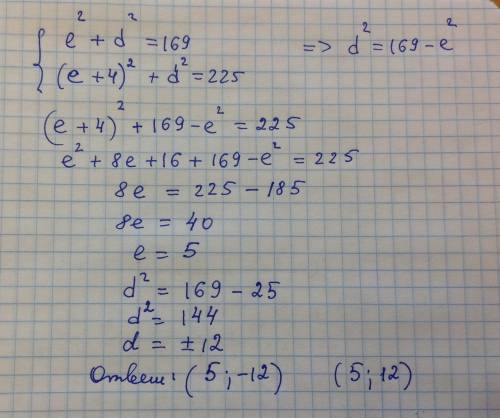 { e² + d² = 169 => d² = 169 - e²
(e + 4)² + d² = 225
(e + 4)² + 169 - e² = 225
e² + 8e + 16 + 169 - e² = 225
8e = 225 - 185
8e = 40
e = 5
d² = 169 - 25
d² = 144
d = ±12
Ответ: (5; -12) (5; 12)